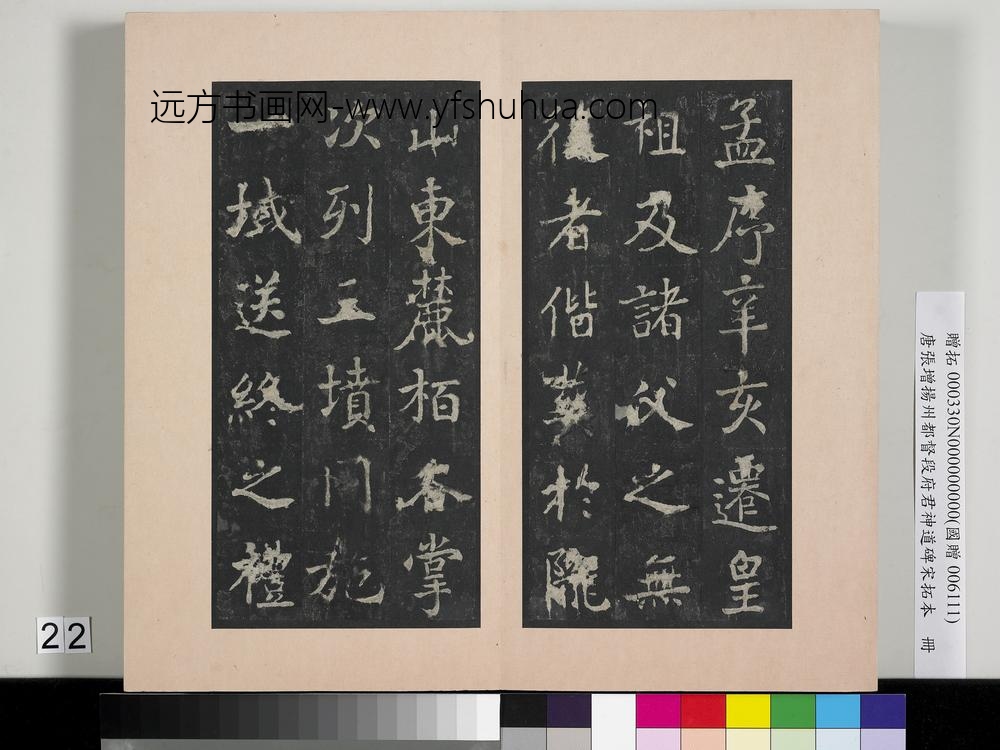 孟序辛亥遷皇
祖及諸父之無
後者偕葬於隴
山東麓栢谷掌
次列三墳同兆
一域送終之禮
远方书画网-www.yfshuhua.com
贈拓 000330N000000000(國贈 006111)
唐張增揚州都督段府君神道碑宋拓本 冊
22